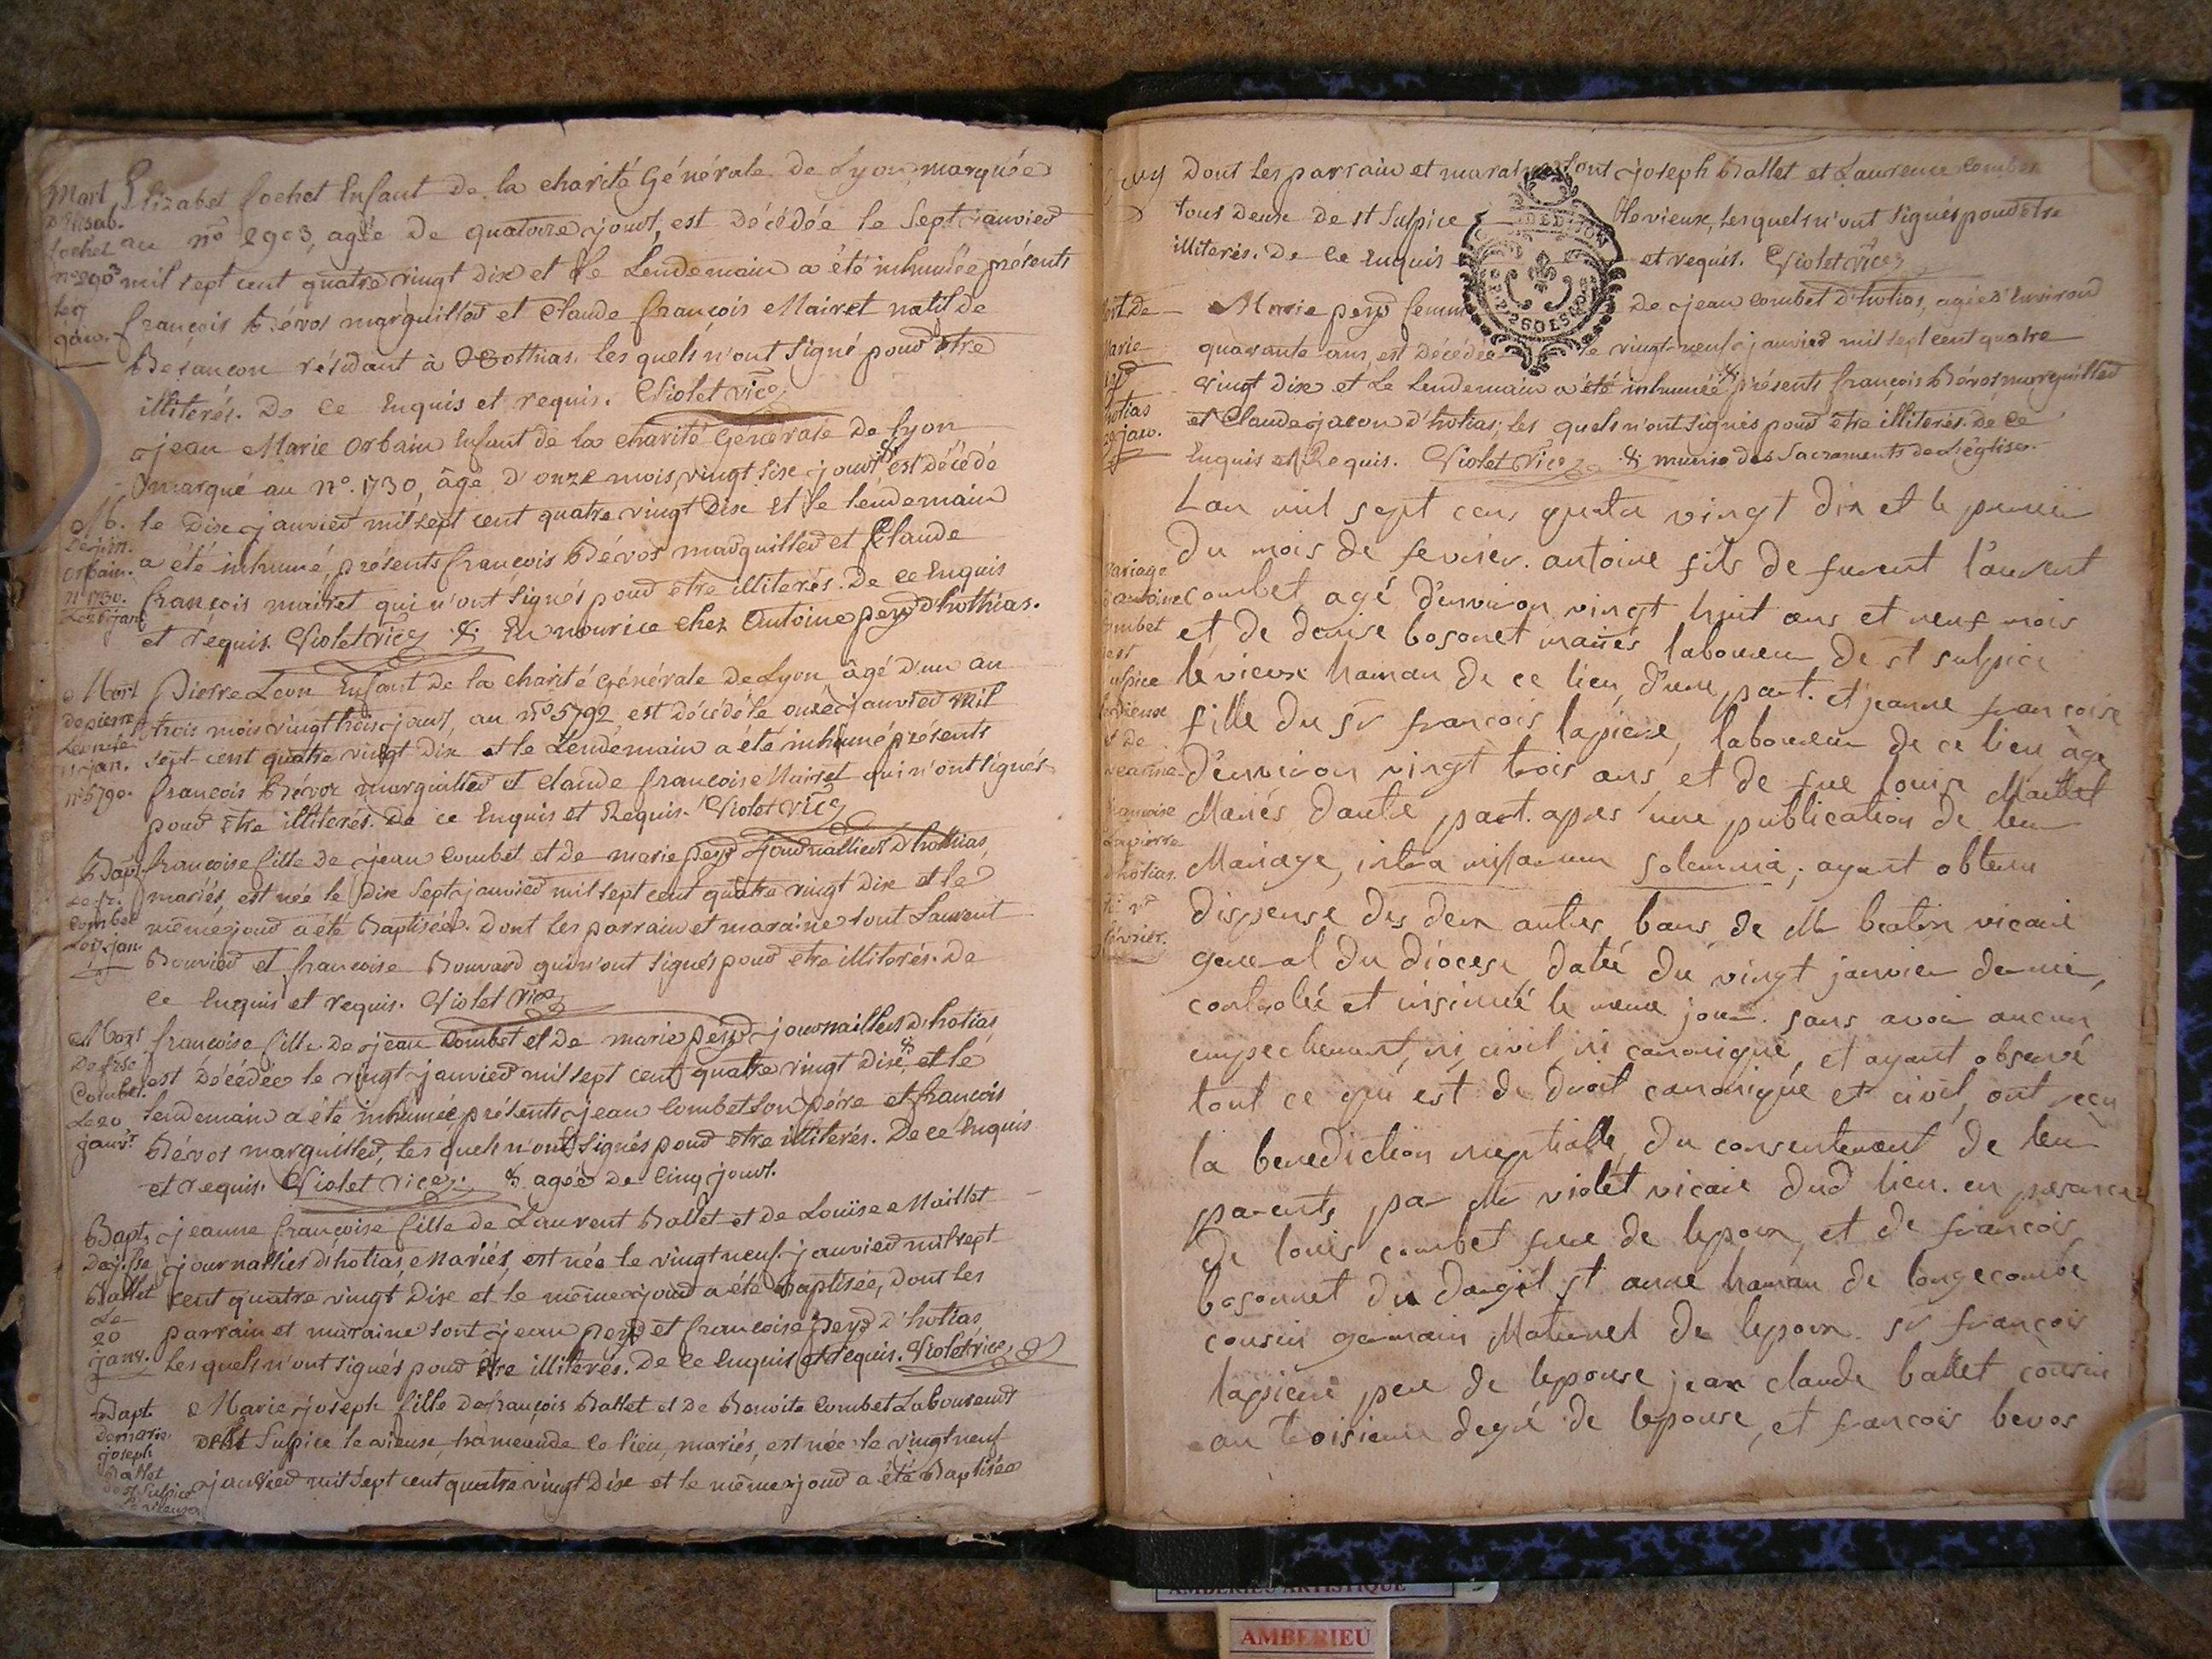 Mort
d'Elisab.
Cochet
n° 2903
le 7
janv.
Elizabet Cochet Enfant de la charité Générale de Lyon, marquée
au n° 2903, agée de quatorze jours, est Décédée le Sept janvier
mil sept cent quatre vingt Dix et le Lendemain a été inhumée présents
françois Bévos marguiller et Claude françois Mairet natif de
Besançon résidant à Hothias. les quels n'ont signé pour être
illiterés. De ce Enquis et requis. Violet vic.
jean Marie Orbain Enfant de la charité Générale de Lyon
marqué au n°. 1730, âgé d'onze mois, vingt six jours & est Décédé
M.
De jean
Orbain.
n° 1730.
Le 10 jan.
le Dix janvier mil sept cent quatre vingt Dix et le lendemain
a été inhumé, présents françois Bévos marguiller et Claude
françois mairet qui n'ont signés pour etre illiterés. De ce Enquis
et requis. Violet vic. & En nourice chez Antoine peyr d'hothias.
Mort
De pierre
Léon le
11 jan.
n° 5790.
Pierre Léon Enfant de la charité Générale De Lyon âgé d'un an
trois mois vingt trois jours, au n° 5792 est Décédé le onze janvier mil
sept cent quatre vingt Dix et le Lendemain a été inhumé présents
françois Bévos marguiller et claude francoise Mairet qui n'ont signés
pour être illiterés. De ce Enquis et Requis. Violet vic.
Bapt.
De fr.
Combet
Le 17 jan.
francoise fille de jean Combet et de marie peyr journalliers d'hothias,
mariés, est née le Dix Sept janvier mil sept cent quatre vingt Dix et le
même jour a été Baptisée. Dont les parrain et maraine sont Laurent
Bouvier et francoise Bouvard qui n'ont signés pour etre illiterés. De
ce Enquis et requis. Violet vic.
Mort
De fse
Combet.
Le 20
janvr.
francoise fille De jean Combet et de marie peyr journalliers d'hotias,
est Décédée le vingt janvier mil sept cent quatre vingt Dix, & et le
lendemain a été inhumée présents jean Combet son pére et francois
Bévos marguiller, les quels n'ont signés pour etre illiterés. De ce Enquis
et requis. Violet vic. & agée De cinq jours.
Bapt.
De j. fse
Ballet
Le
20
janv.
jeanne francoise fille de Laurent Ballet et de Louïse Maillet
journalliés d'hotias, Mariés, est née le vingt neuf janvier mil sept
cent quatre vingt Dix et le même jour a été Baptisée, dont les
parrain et maraine sont jean peyr et francoise peyr d'hotias,
les quels n'ont signés pour être illiterés. De ce Enquis et requis. Violet vic.
Bapt.
De marie
joseph
Ballet
De st Sulpice
Le vieux
Marie joseph fille De françois Ballet et De Benoite Combet Laboureurs
De st Sulpice le vieux, hameau de ce lieu, mariés, est née le vingt neuf
janvier mil sept cent quatre vingt Dix et le même jour a été Baptisée
Dont les parrain et maraine sont joseph Ballet et Laurence Combet
tous Deux De st Sulpice le vieux, lesquels n'ont signés pour être
illiterés. De ce Enquis et requis. Violet vic.
Mort De
Marie
peyr
d'hotias
29 janv.
Marie peyr femme De jean Combet d'hotias, agée d'Environ
quarante ans, est Décédée le vingt-neuf janvier mil sept cent quatre
vingt Dix et Le Lendemain a été inhumée & présents françois Bévos marguiller
et Claude jacon d'hotias, les quels n'ont signés pour être illiterés. De ce
Enquis et Requis. Violet vic. & munie des Sacrements de l'église.
Mariage
d'antoine
Combet
de st
Sulpice
le vieux
et De
jeanne
francoise
Lapierre
d'hotias.
le 1er
février.
Lan mil sept cens quatre vingt dix et le premier
du mois de fevrier. antoine fils de furent laurent
combet, agé d'environ vingt huit ans et neuf mois
et de denise bosonet mariés laboureur de st sulpice
le vieux hamau de ce lieu, d'une part. et jeanne françoise
fille du sr françois lapiere, laboureur de ce lieu âge
d'environ vingt trois ans, et de fue louise Maillet
Mariés d'autre part. apres une publication de leur
Mariage, intra missarum solemnia; ayant obtenu
dispense des deux autres bans de Mr beatin vicaire
general du diocese, datée du vingt janvier dernier,
controlée et insinuée le meme jour. sans avoir aucun
empechement, ni civil, ni canonique, et ayant observé
tout ce qui est de droit canonique et civil, ont reçu
la benediction nuptialle, du consentement de leur
parents, par Mr violet vicaire dud lieu. en presence
de louis combet frere de lepoux, et de françois
bosonnet du dongil st anne hamau de longecombe
cousin germain Maternel de lepoux. sr françois
lapiere pere de lepouse, jean claude ballet cousin
au troisieme degré de lepouse, et françois bevos
AMBERIEU ARTISTIQUE
AMBERIEU